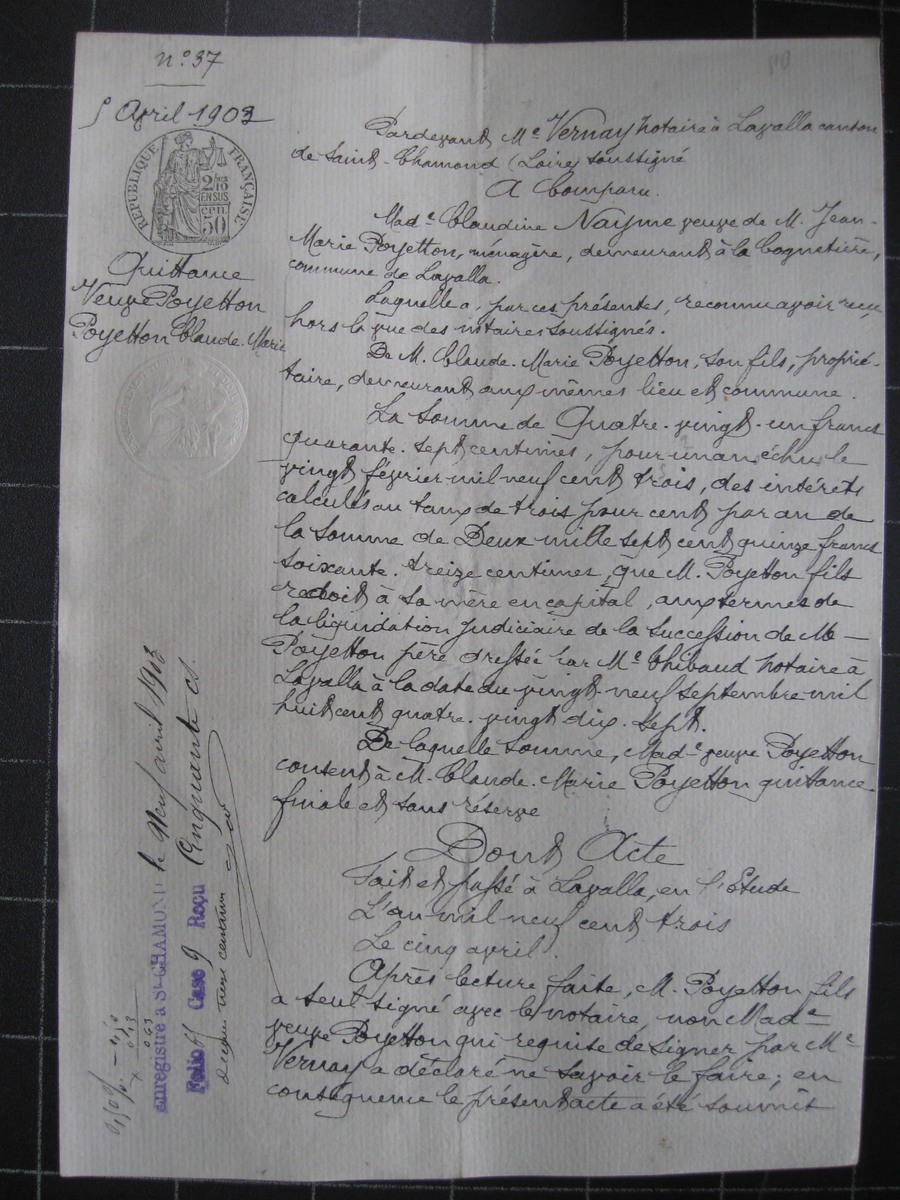 n° 37
5 Avril 1903
RÉPUBLIQUE FRANÇAISE
2/10
EN SUS
50
cen.
Quittance
Veuve Poyetton
Poyetton Claude-Marie
Pardevant Me Vernay notaire à Lavalla canton
de Saint-Chamond (Loire) soussigné
A Comparu.
Made Claudine Nayme veuve de M. Jean-
Marie Poyetton, ménagère, demeurant à la Cognetière,
commune de Lavalla.
Laquelle a, par ces présentes, reconnu avoir reçu,
hors la vue des notaires soussignés.
De M. Claude-Marie Poyetton, son fils, proprié-
taire, demeurant aux mêmes lieu et commune.
La somme de Quatre-vingt-un francs
quarante-sept centimes, pour un an échu le
vingt février mil neuf cent trois, des intérêts
calculés au taux de trois pour cent par an de
la somme de Deux mille sept cent quinze francs
soixante-treize centimes, que M. Poyetton fils
redoit à sa mère en capital, aux termes de
la liquidation judiciaire de la succession de M.
Poyetton père dressée par Me Thibaud notaire à
Lavalla à la date du vingt-neuf septembre mil
huit cent quatre-vingt dix-sept.
De laquelle somme, Made veuve Poyetton
consent à M. Claude-Marie Poyetton quittance
finale et sans réserve
Dont Acte
Fait et passé à Lavalla, en l'Étude
L'an mil neuf cent trois
Le cinq avril.
Après lecture faite, M. Poyetton fils
a seul signé avec le notaire, non Made
veuve Poyetton qui requise de signer par Me
Vernay a déclaré ne savoir le faire; en
conséquence le présent acte a été soumis
enregistré à St-CHAMOND le neuf avril 1903
Folio Case 9 Reçu Cinquante cs